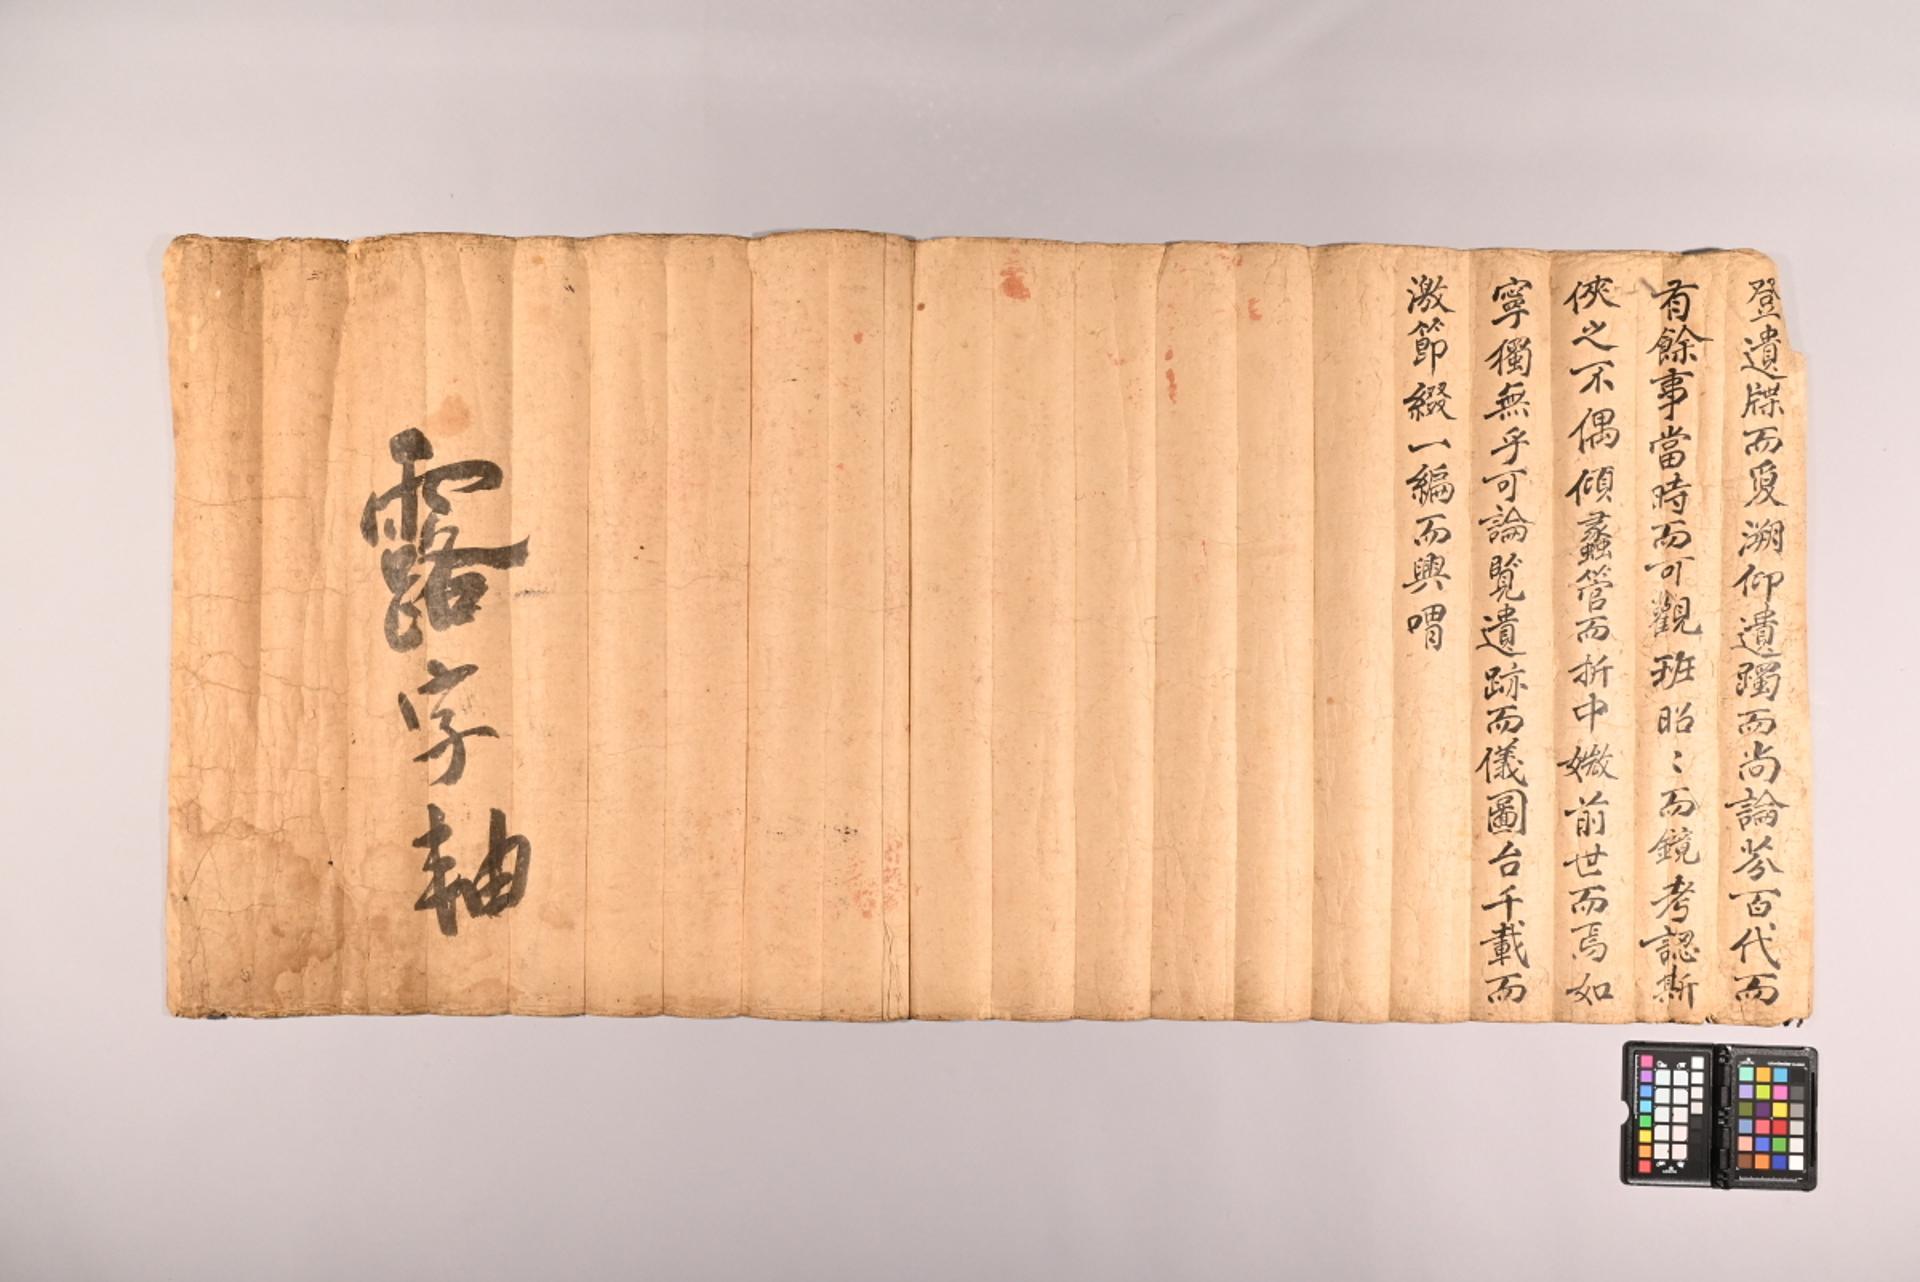 登遺牒而爰溯仰遺躅而尚論芬百代而
有餘事當時而可觀班昭〻而鏡考認斯
俠之不偶傾蠡管而折中媺前世而焉如
寧獨無乎可論覽遺跡而儀圖台千載而
激節綴一編而興喟
露字軸